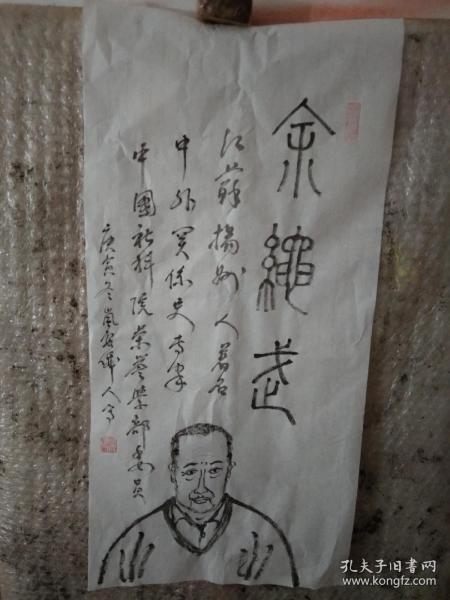 余繩武
江蘇揚州人著名
中外关係史专家
中國社科院荣誉学部委員
庚寅冬嵐
人写
孔夫子旧书网
www.kongfz.com